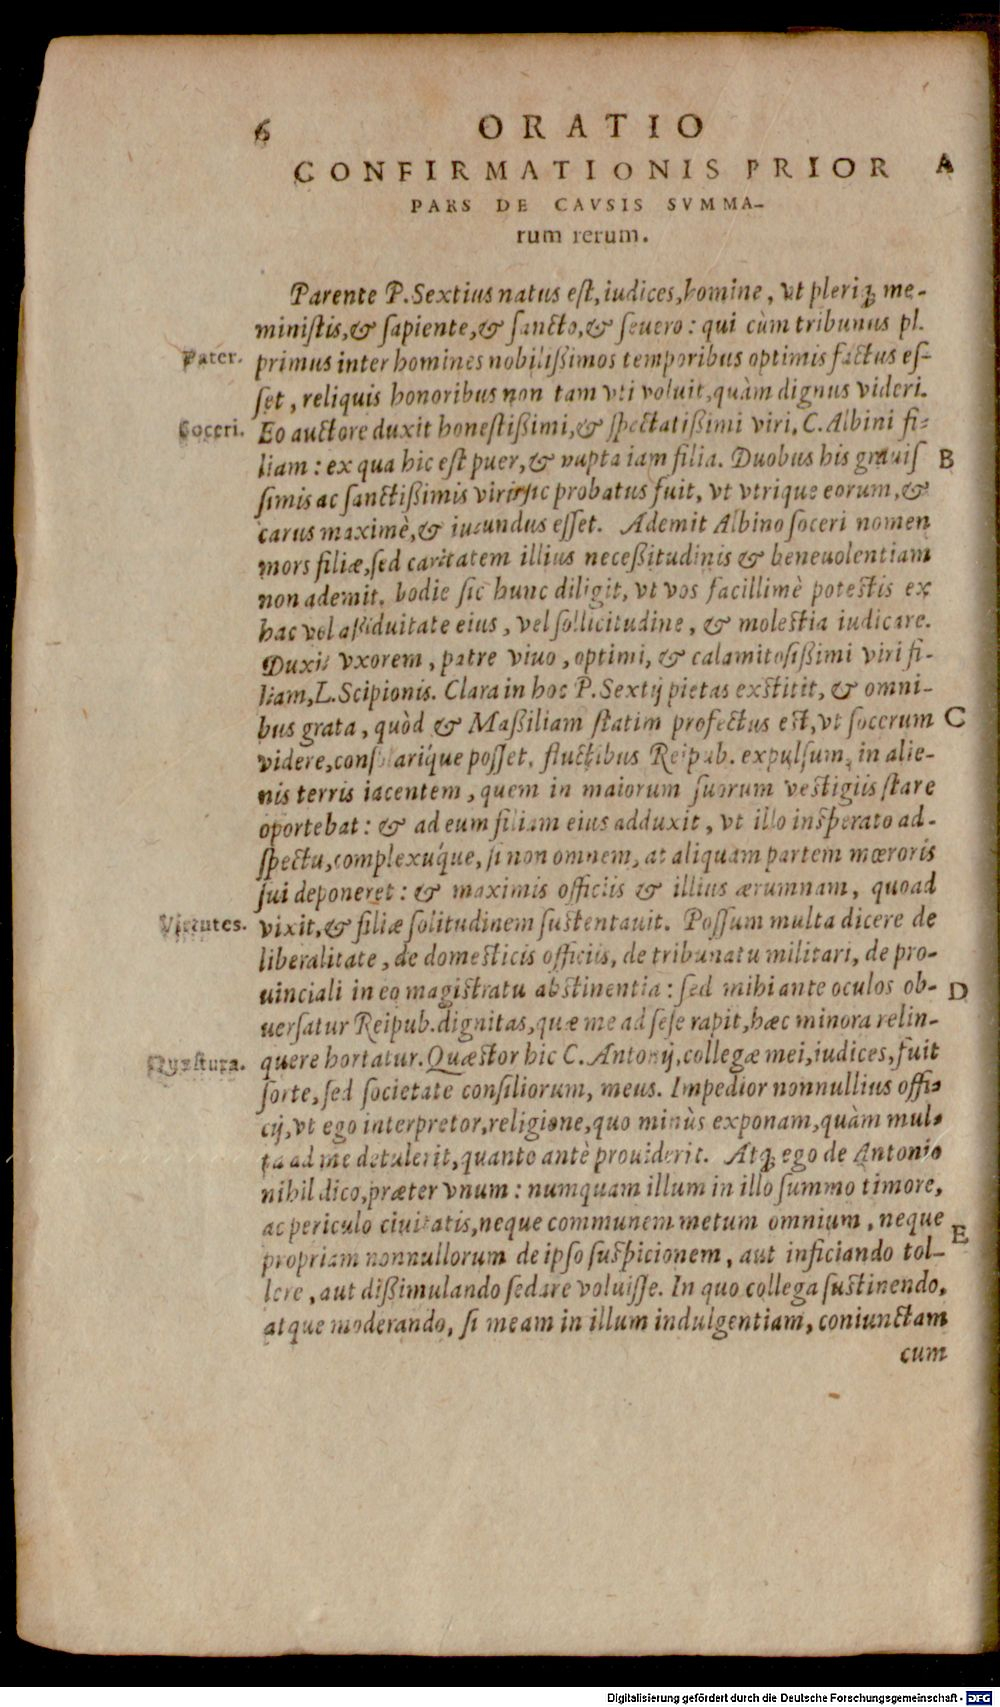 6 ORATIO
CONFIRMATIONIS PRIOR A
PARS DE CAVSIS SVMMA-
rum rerum.
Parente P. Sextius natus est, iudices, homine, vt pleriq; me-
ministis, & sapiente, & sancto, & seuero: qui cùm tribunus pl.
Pater. primus inter homines nobilißimos temporibus optimis factus es-
set, reliquis honoribus non tam vti voluit, quàm dignus videri.
Soceri. Eo auctore duxit honestißimi, & spectatißimi viri, C. Albini fi-
liam: ex qua hic est puer, & nupta iam filia. Duobus his grauis B
simis ac sanctißimis viris sic probatus fuit, vt vtrique eorum, &
carus maximè, & iucundus esset. Ademit Albino soceri nomen
mors filiæ, sed caritatem illius neceßitudinis & beneuolentiam
non ademit. hodie sic hunc diligit, vt vos facillimè potestis ex
hac vel aßiduitate eius, vel sollicitudine, & molestia iudicare.
Duxit vxorem, patre viuo, optimi, & calamitosißimi viri fi-
liam, L. Scipionis. Clara in hoc P. Sextij pietas exstitit, & omni-
bus grata, quòd & Maßiliam statim profectus est, vt socerum C
videre, consolarique posset, fluctibus Reipub. expulsum, in alie-
nis terris iacentem, quem in maiorum suorum vestigiis stare
oportebat: & ad eum filiam eius adduxit, vt illo insperato ad-
spectu, complexuque, si non omnem, at aliquam partem mœroris
sui deponeret: & maximis officiis & illius ærumnam, quoad
Virtutes. vixit, & filiæ solitudinem sustentauit. Possum multa dicere de
liberalitate, de domesticis officiis, de tribunatu militari, de pro-
uinciali in eo magistratu abstinentia: sed mihi ante oculos ob- D
uersatur Reipub. dignitas, quæ me ad sese rapit, hæc minora relin-
Quæstura. quere hortatur. Quæstor hic C. Antonij, collegæ mei, iudices, fuit
sorte, sed societate consiliorum, meus. Impedior nonnullius offi-
cij, vt ego interpretor, religione, quo minùs exponam, quàm mul-
ta ad me detulerit, quanto antè prouiderit. Atq; ego de Antonio
nihil dico, præter vnum: numquam illum in illo summo timore,
ac periculo ciuitatis, neque communem metum omnium, neque
propriam nonnullorum de ipso suspicionem, aut inficiando tol- E
lere, aut dißimulando sedare voluisse. In quo collega sustinendo,
atque moderando, si meam in illum indulgentiam, coniunctam
cum
Digitalisierung gefördert durch die Deutsche Forschungsgemeinschaft - DFG